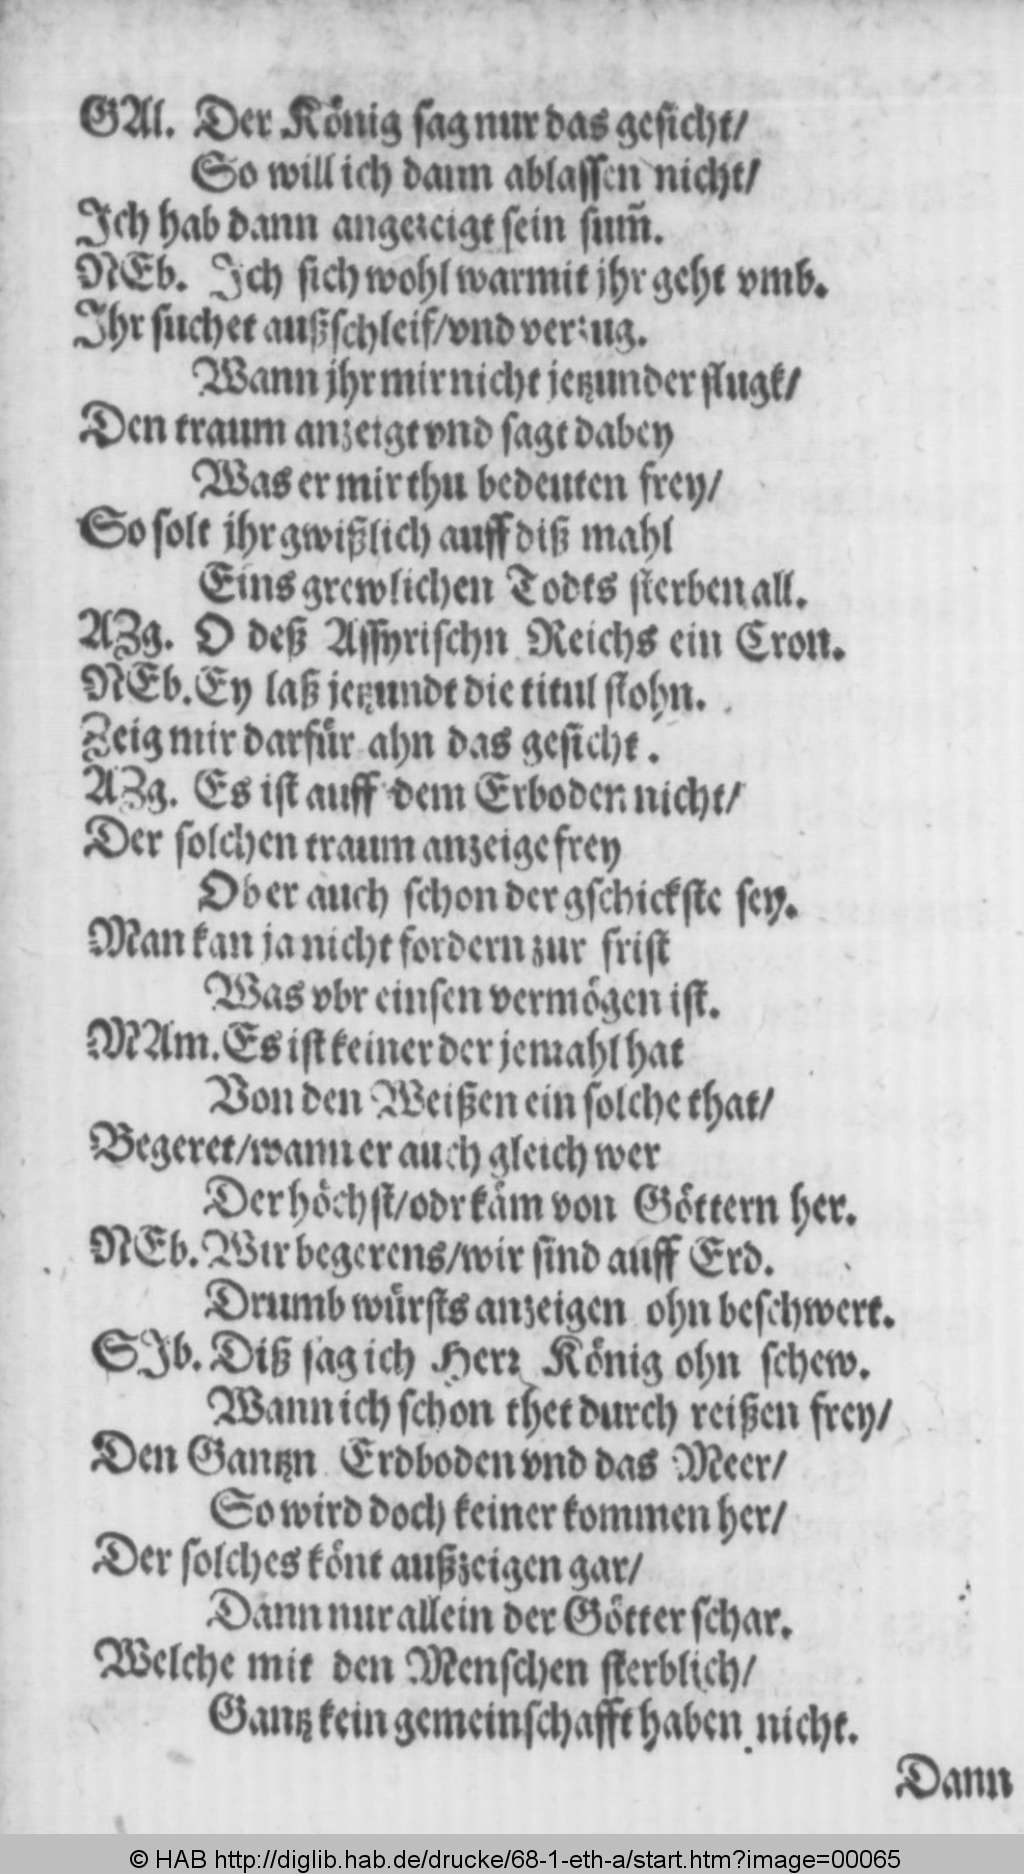 GAl. Der König sag nur das gesicht/
So will ich dann ablassen nicht/
Ich hab dann angezeigt sein sum̃.
NEb. Ich sich wohl warmit jhr geht vmb.
Ihr suchet außschleif/vnd verzug.
Wann jhr mir nicht jetzunder flugk/
Den traum anzeigt vnd sagt dabey
Was er mir thu bedeuten frey/
So solt jhr gwißlich auff diß mahl
Eins grewlichen Todts sterben all.
AZg. O deß Assyrischn Reichs ein Cron.
NEb. Ey laß jetzundt die titul stohn.
Zeig mir darfür ahn das gesicht.
AZg. Es ist auff dem Erboden nicht/
Der solchen traum anzeige frey
Ob er auch schon der gschickste sey.
Man kan ja nicht fordern zur frist
Was vbr einsen vermögen ist.
MAm. Es ist keiner der jemahl hat
Von den Weißen ein solche that/
Begeret/wann er auch gleich wer
Der höchst/odr käm von Göttern her.
NEb. Wir begerens/wir sind auff Erd.
Drumb würsts anzeigen ohn beschwert.
SIb. Diß sag ich Herr König ohn schew.
Wann ich schon thet durch reißen frey/
Den Gantzn Erdboden vnd das Meer/
So wird doch keiner kommen her/
Der solches könt außzeigen gar/
Dann nur allein der Götter schar.
Welche mit den Menschen sterblich/
Gantz kein gemeinschafft haben nicht.
Dann
© HAB http://diglib.hab.de/drucke/68-1-eth-a/start.htm?image=00065